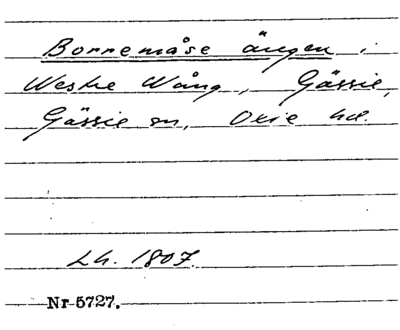 Borremåse ängen i
Westre Wång, Gässie,
Gässie sn, Oxie hd.
Lh. 1807.
Nr 5727.